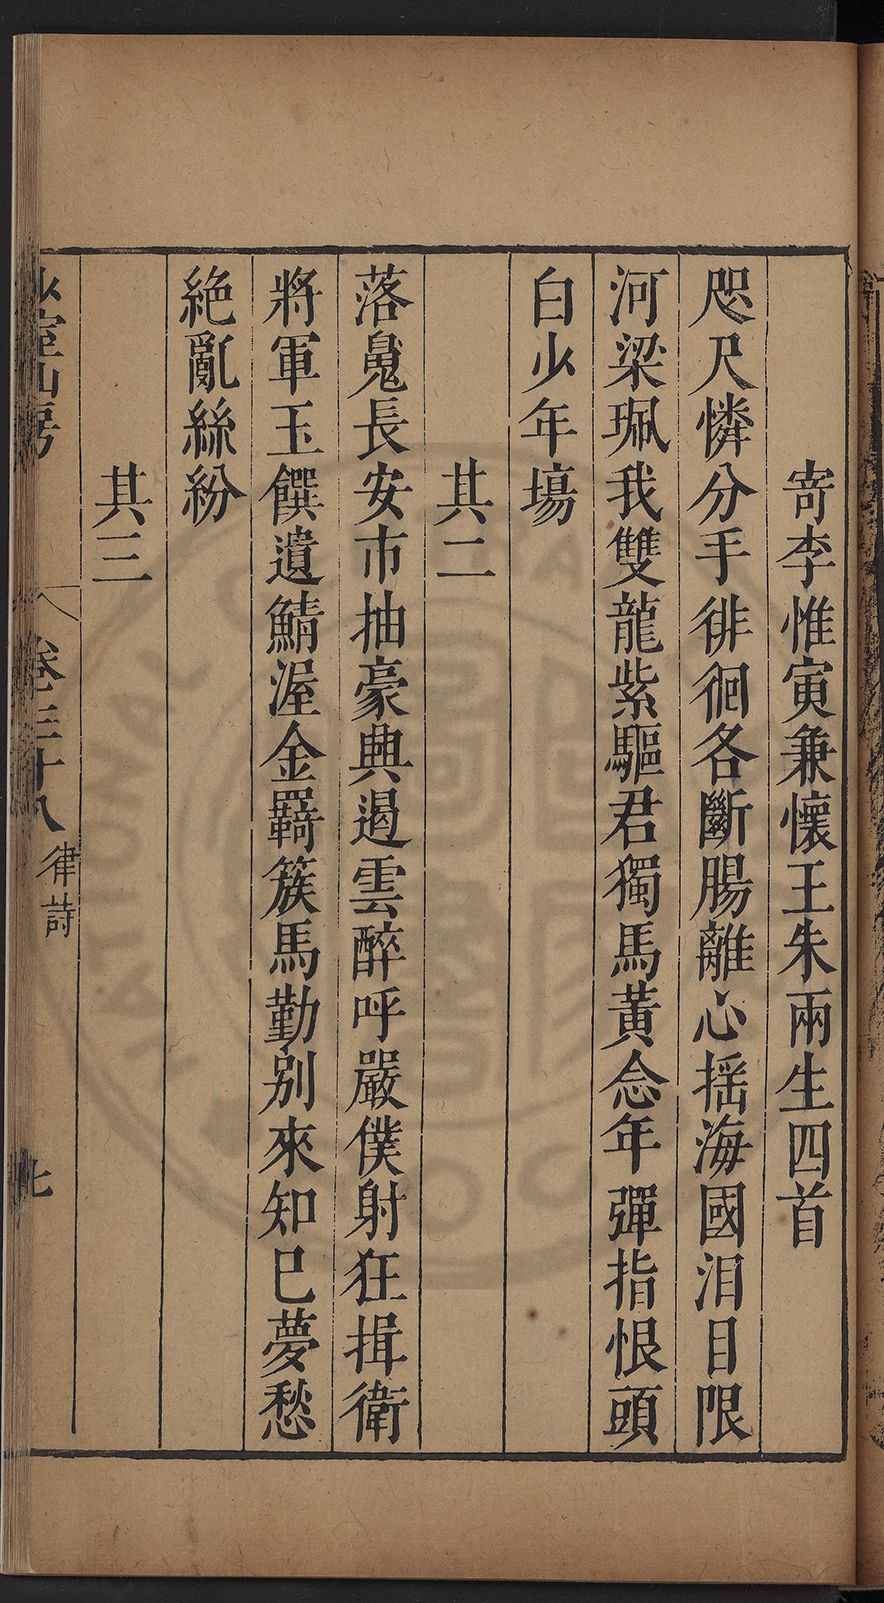 寄李惟寅兼懷王朱兩生四首
咫尺憐分手徘徊各斷腸離心揺海國淚目限
河梁珮我雙龍紫驅君獨馬黃念年彈指恨頭
白少年塲
其二
落魄長安市抽豪典遏雲醉呼嚴僕射狂揖衛
將軍玉饌遺鯖渥金羇簇馬勤別來知巳夢愁
絶亂絲紛
其三
少室山房
卷三十八
律詩
七